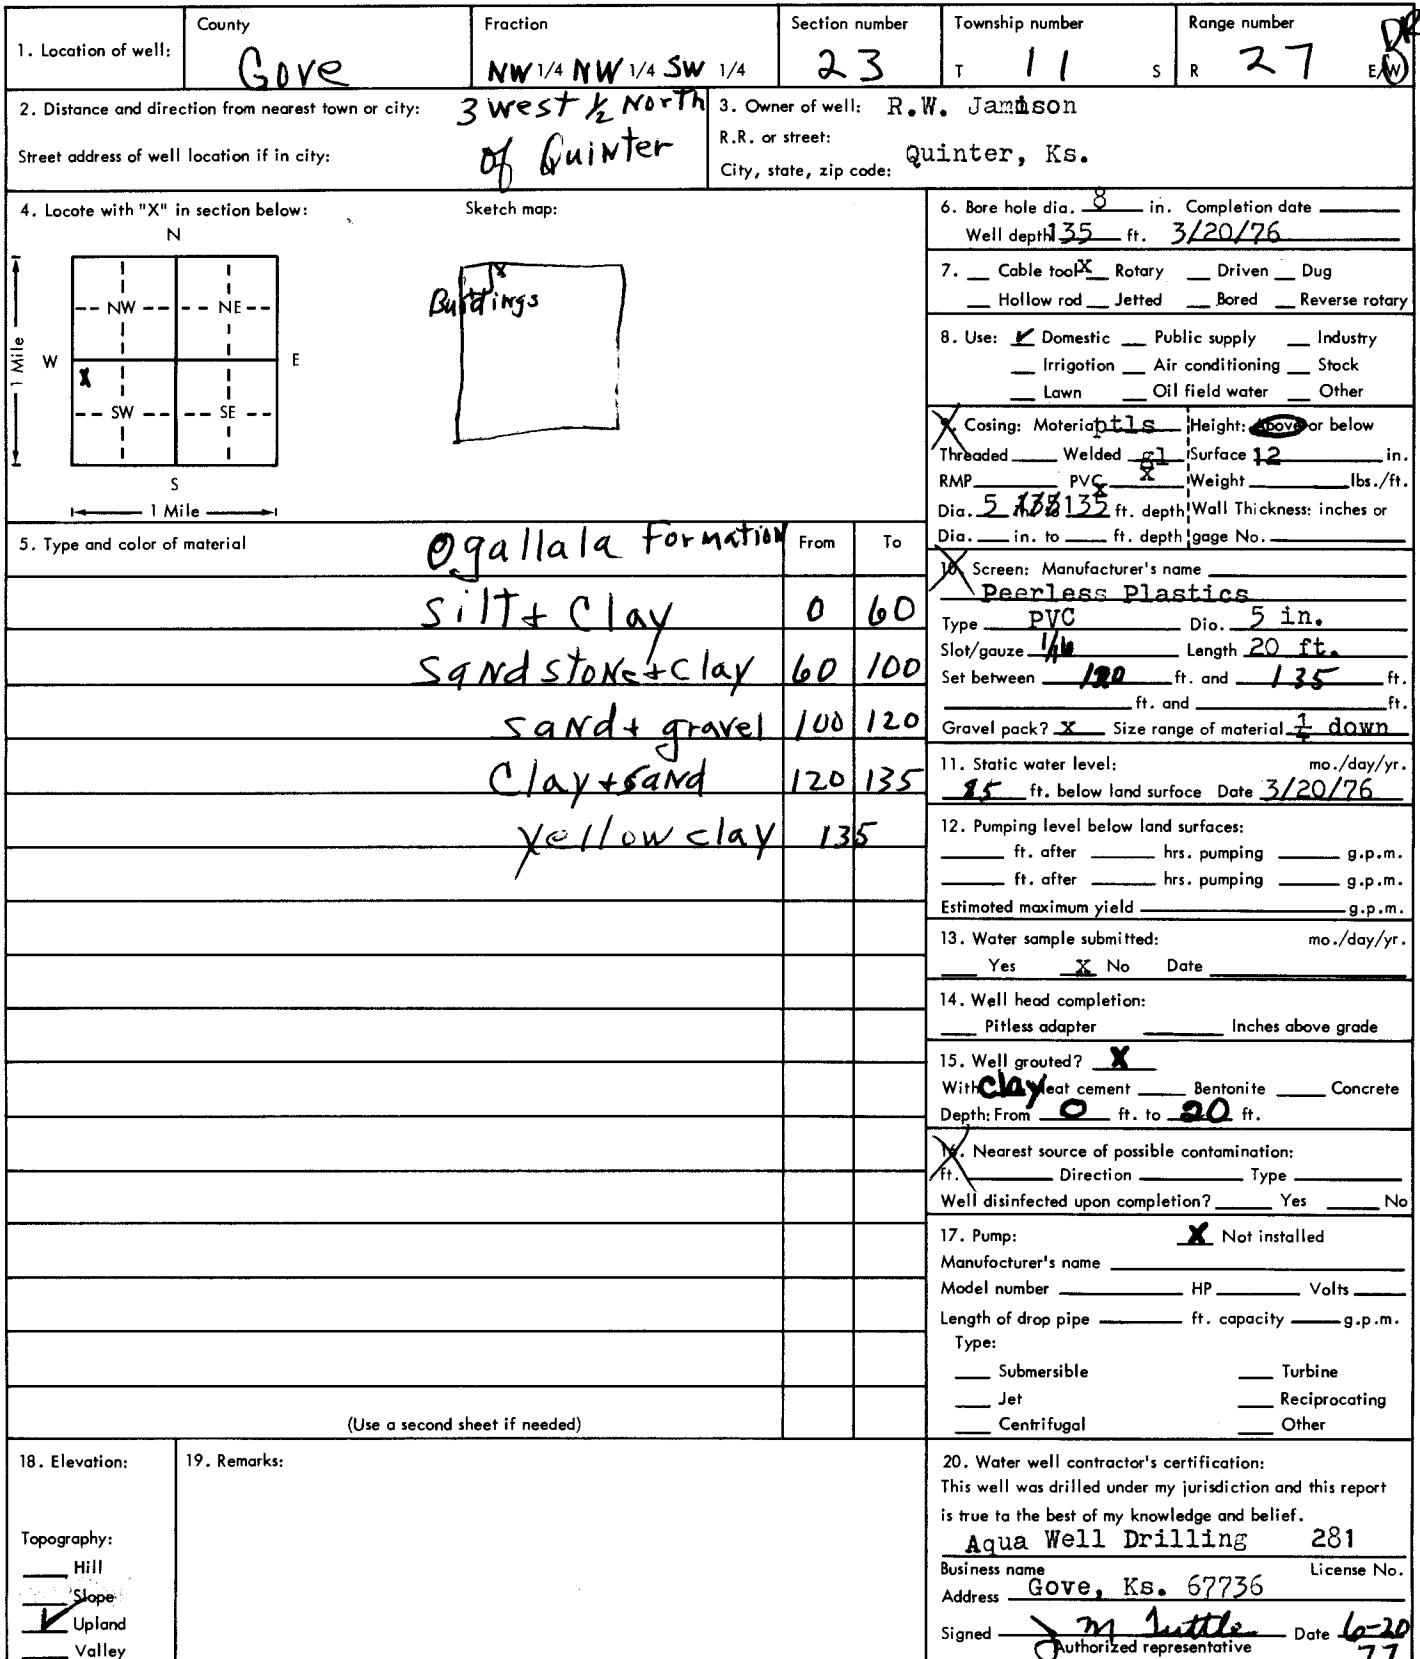 County Fraction Section number Township number Range number
1. Location of well: Gove NW 1/4 NW 1/4 SW 1/4 23 T 11 S R 27 E/W
2. Distance and direction from nearest town or city: 3 west 1/2 North
Street address of well location if in city: of Quinter
3. Owner of well: R.W. Jamison
R.R. or street:
City, state, zip code: Quinter, Ks.
4. Locate with "X" in section below: Sketch map:
N
NW NE
W E
X
SW SE
S
1 Mile
1 Mile
X
Buildings
5. Type and color of material Ogallala Formation From To
Silt + Clay 0 60
Sandstone + Clay 60 100
Sand + gravel 100 120
Clay + sand 120 135
Yellow clay 135
(Use a second sheet if needed)
6. Bore hole dia. 8 in. Completion date
Well depth 135 ft. 3/20/76
7. Cable tool X Rotary Driven Dug
Hollow rod Jetted Bored Reverse rotary
8. Use: ✓ Domestic Public supply Industry
Irrigation Air conditioning Stock
Lawn Oil field water Other
9. Casing: Material ptls Height: Above or below
Threaded Welded gl Surface 12 in.
RMP PVC X Weight lbs./ft.
Dia. 5 135 ft. depth Wall Thickness: inches or
Dia. in. to ft. depth gage No.
10. Screen: Manufacturer's name
Peerless Plastics
Type PVC Dia. 5 in.
Slot/gauze 1/16 Length 20 ft.
Set between 120 ft. and 135 ft.
ft. and ft.
Gravel pack? X Size range of material down
11. Static water level: mo./day/yr.
85 ft. below land surface Date 3/20/76
12. Pumping level below land surfaces:
ft. after hrs. pumping g.p.m.
ft. after hrs. pumping g.p.m.
Estimated maximum yield g.p.m.
13. Water sample submitted: mo./day/yr.
Yes X No Date
14. Well head completion:
Pitless adapter Inches above grade
15. Well grouted? X
With clay Neat cement Bentonite Concrete
Depth: From 0 ft. to 20 ft.
16. Nearest source of possible contamination:
ft. Direction Type
Well disinfected upon completion? Yes No
17. Pump: X Not installed
Manufacturer's name
Model number HP Volts
Length of drop pipe ft. capacity g.p.m.
Type:
Submersible Turbine
Jet Reciprocating
Centrifugal Other
18. Elevation:
Topography:
Hill
Slope
✓ Upland
Valley
19. Remarks:
20. Water well contractor's certification:
This well was drilled under my jurisdiction and this report
is true to the best of my knowledge and belief.
Aqua Well Drilling 281
Business name License No.
Address Gove, Ks. 67736
Signed M Tuttle Date 6-20
Authorized representative 77